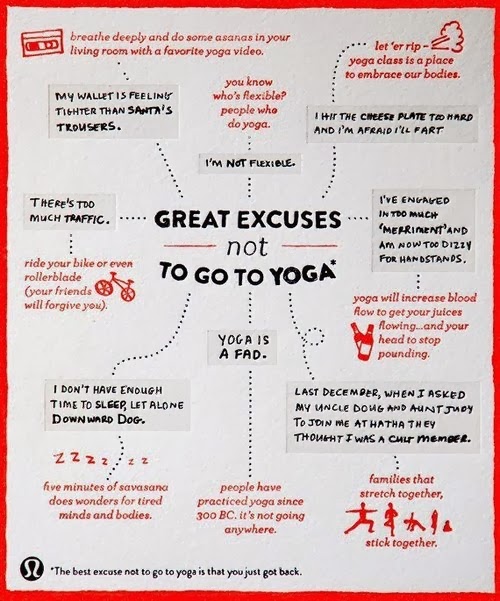 breathe deeply and do some asanas in your
living room with a favorite yoga video.
MY WALLET IS FEELING
TIGHTER THAN SANTA'S
TROUSERS.
you know
who's flexible?
people who
do yoga.
I'M NOT FLEXIBLE.
let 'er rip –
yoga class is a place
to embrace our bodies.
I HIT THE CHEESE PLATE TOO HARD
AND I'M AFRAID I'LL FART
THERE'S TOO
MUCH TRAFFIC.
ride your bike or even
rollerblade
(your friends
will forgive you).
GREAT EXCUSES
not
TO GO TO YOGA*
I'VE ENGAGED
IN TOO MUCH
'MERRIMENT' AND
AM NOW TOO DIZZY
FOR HANDSTANDS.
yoga will increase blood
flow to get your juices
flowing...and your
head to stop
pounding.
YOGA IS
A FAD.
I DON'T HAVE ENOUGH
TIME TO SLEEP, LET ALONE
DOWNWARD DOG.
zzzz zz
five minutes of savasana
does wonders for tired
minds and bodies.
people have
practiced yoga since
300 BC. it's not going
anywhere.
LAST DECEMBER, WHEN I ASKED
MY UNCLE DOUG AND AUNT JUDY
TO JOIN ME AT HATHA THEY
THOUGHT I WAS A CULT MEMBER.
families that
stretch together,
stick together.
*The best excuse not to go to yoga is that you just got back.